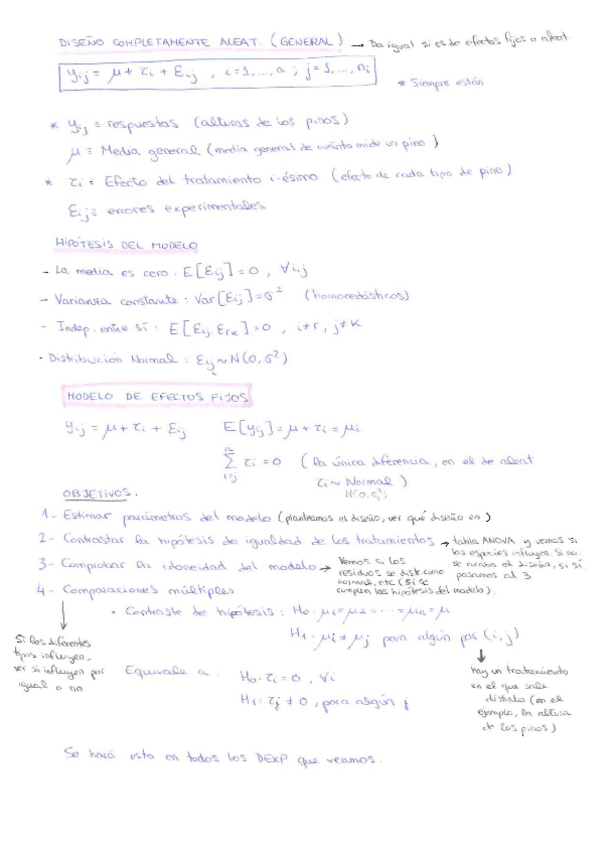 DISEÑO COMPLETAMENTE ALEAT. (GENERAL) → Da igual si es de efectos fijos o aleat
yij = μ + τi + εij , i=1,...,a ; j=1,...,ni
* Siempre están
* yij ≡ respuestas (alturas de los pinos)
μ ≡ Media general (media general de cuánto mide un pino)
* τi ≡ Efecto del tratamiento i-ésimo (efecto de cada tipo de pino)
εij ≡ errores experimentales
HIPÓTESIS DEL MODELO
- La media es cero : E[εij] = 0 , ∀i,j
- Varianza constante : Var[εij] = σ² (homocedásticos)
- Indep. entre sí : E[εij. εrk] = 0 , i≠r, j≠k
- Distribución Normal : εij ~ N(0,σ²)
MODELO DE EFECTOS FIJOS
yij = μ + τi + εij E[yij] = μ + τi = μi
a
∑ τi = 0 (la única diferencia, en el de aleat
i=j
τi ~ Normal)
OBJETIVOS.
1 - Estimar parámetros del modelo (planteamos el diseño, ver qué diseño es)
2 - Contrastar la hipótesis de igualdad de los tratamientos → tabla ANOVA y vemos si
las especies influyen. Si no
se acaba el diseño, si sí
pasamos al 3
3 - Comprobar la idoneidad del modelo → Vemos si los
residuos se distr. como
normas, etc (si se
cumplen las hipótesis del modelo).
4 - Comparaciones múltiples
• Contraste de hipótesis : H0: μ1 = μ2 = ... = μa = μ
H1: μi ≠ μj para algún par (i,j)
Si los diferentes
tipos influyen,
ver si influyen por
igual o no
Equivale a : H0: τi = 0 , ∀i
H1: τj ≠ 0 , para algún j
hay un tratamiento
en el que sale
distinto (en el
ejemplo, la altura
de los pinos)
Se hará esto en todos los DEXP que veamos.